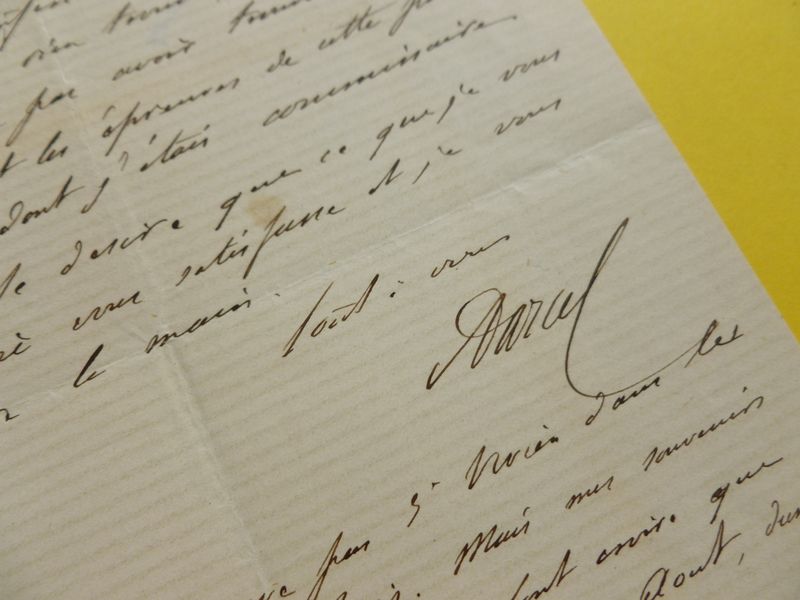 rien trouv
pas avoir trouv
les épreuves de cette p
dont j'étais commissaire
Je desire que ce que je vous
vous satisfasse et je vous
la main. Tout à vous
A Darcel
pas St Vivien dans les
Mais mes souvenirs
font croire que
Dont, du